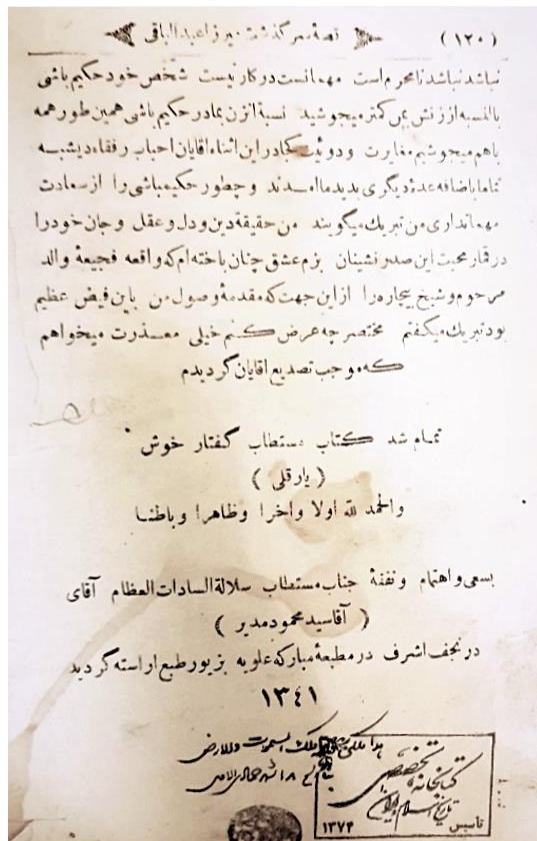 (۱۲۰) قصهٔ سرگذشت میرزا عبدالباقی
نباشد نباشد نامحرم است مهمانست در کار نیست شخص خود حکیم باشی
بالنسبه از زنش بمن کمتر میجوشید نسبة از زن بمادر حکیم باشی همین طور همه
باهم میجوشیم مغایرت و دوئیت کجا در این اثناء اقایان احباب رفقاء دیشبه
تماما باضافه عدهٔ دیگری بدید ما امدند و چطور حکیمباشی را از سعادت
مهمانداری من تبریك میگویند من حقیقة دین و دل و عقل و جان خود را
در قمار محبت این صدر نشینان بزم عشق چنان باخته ام که واقعه فجیعهٔ والد
مرحوم و شیخ بیچاره را از این جهت که مقدمهٔ وصول من باین فیض عظیم
بود تبریك میگفتم مختصر چه عرض کنم خیلی معذرت میخواهم
که موجب تصدیع اقایان گردیدم
تمام شد کتاب مستطاب گفتار خوش
( یارقلی )
والحمد لله اولا واخرا وظاهرا وباطنا
بسعی و اهتمام ونفقهٔ جناب مستطاب سلالة السادات العظام آقای
( آقا سید محمود مدیر )
در نجف اشرف در مطبعهٔ مبارکه علویه بزیور طبع اراسته گردید
۱۳٤۱
ملك السموات والارض
کتابخانه تخصصی
تاریخ اسلام و ایران
تاسیس ۱۳۷۴